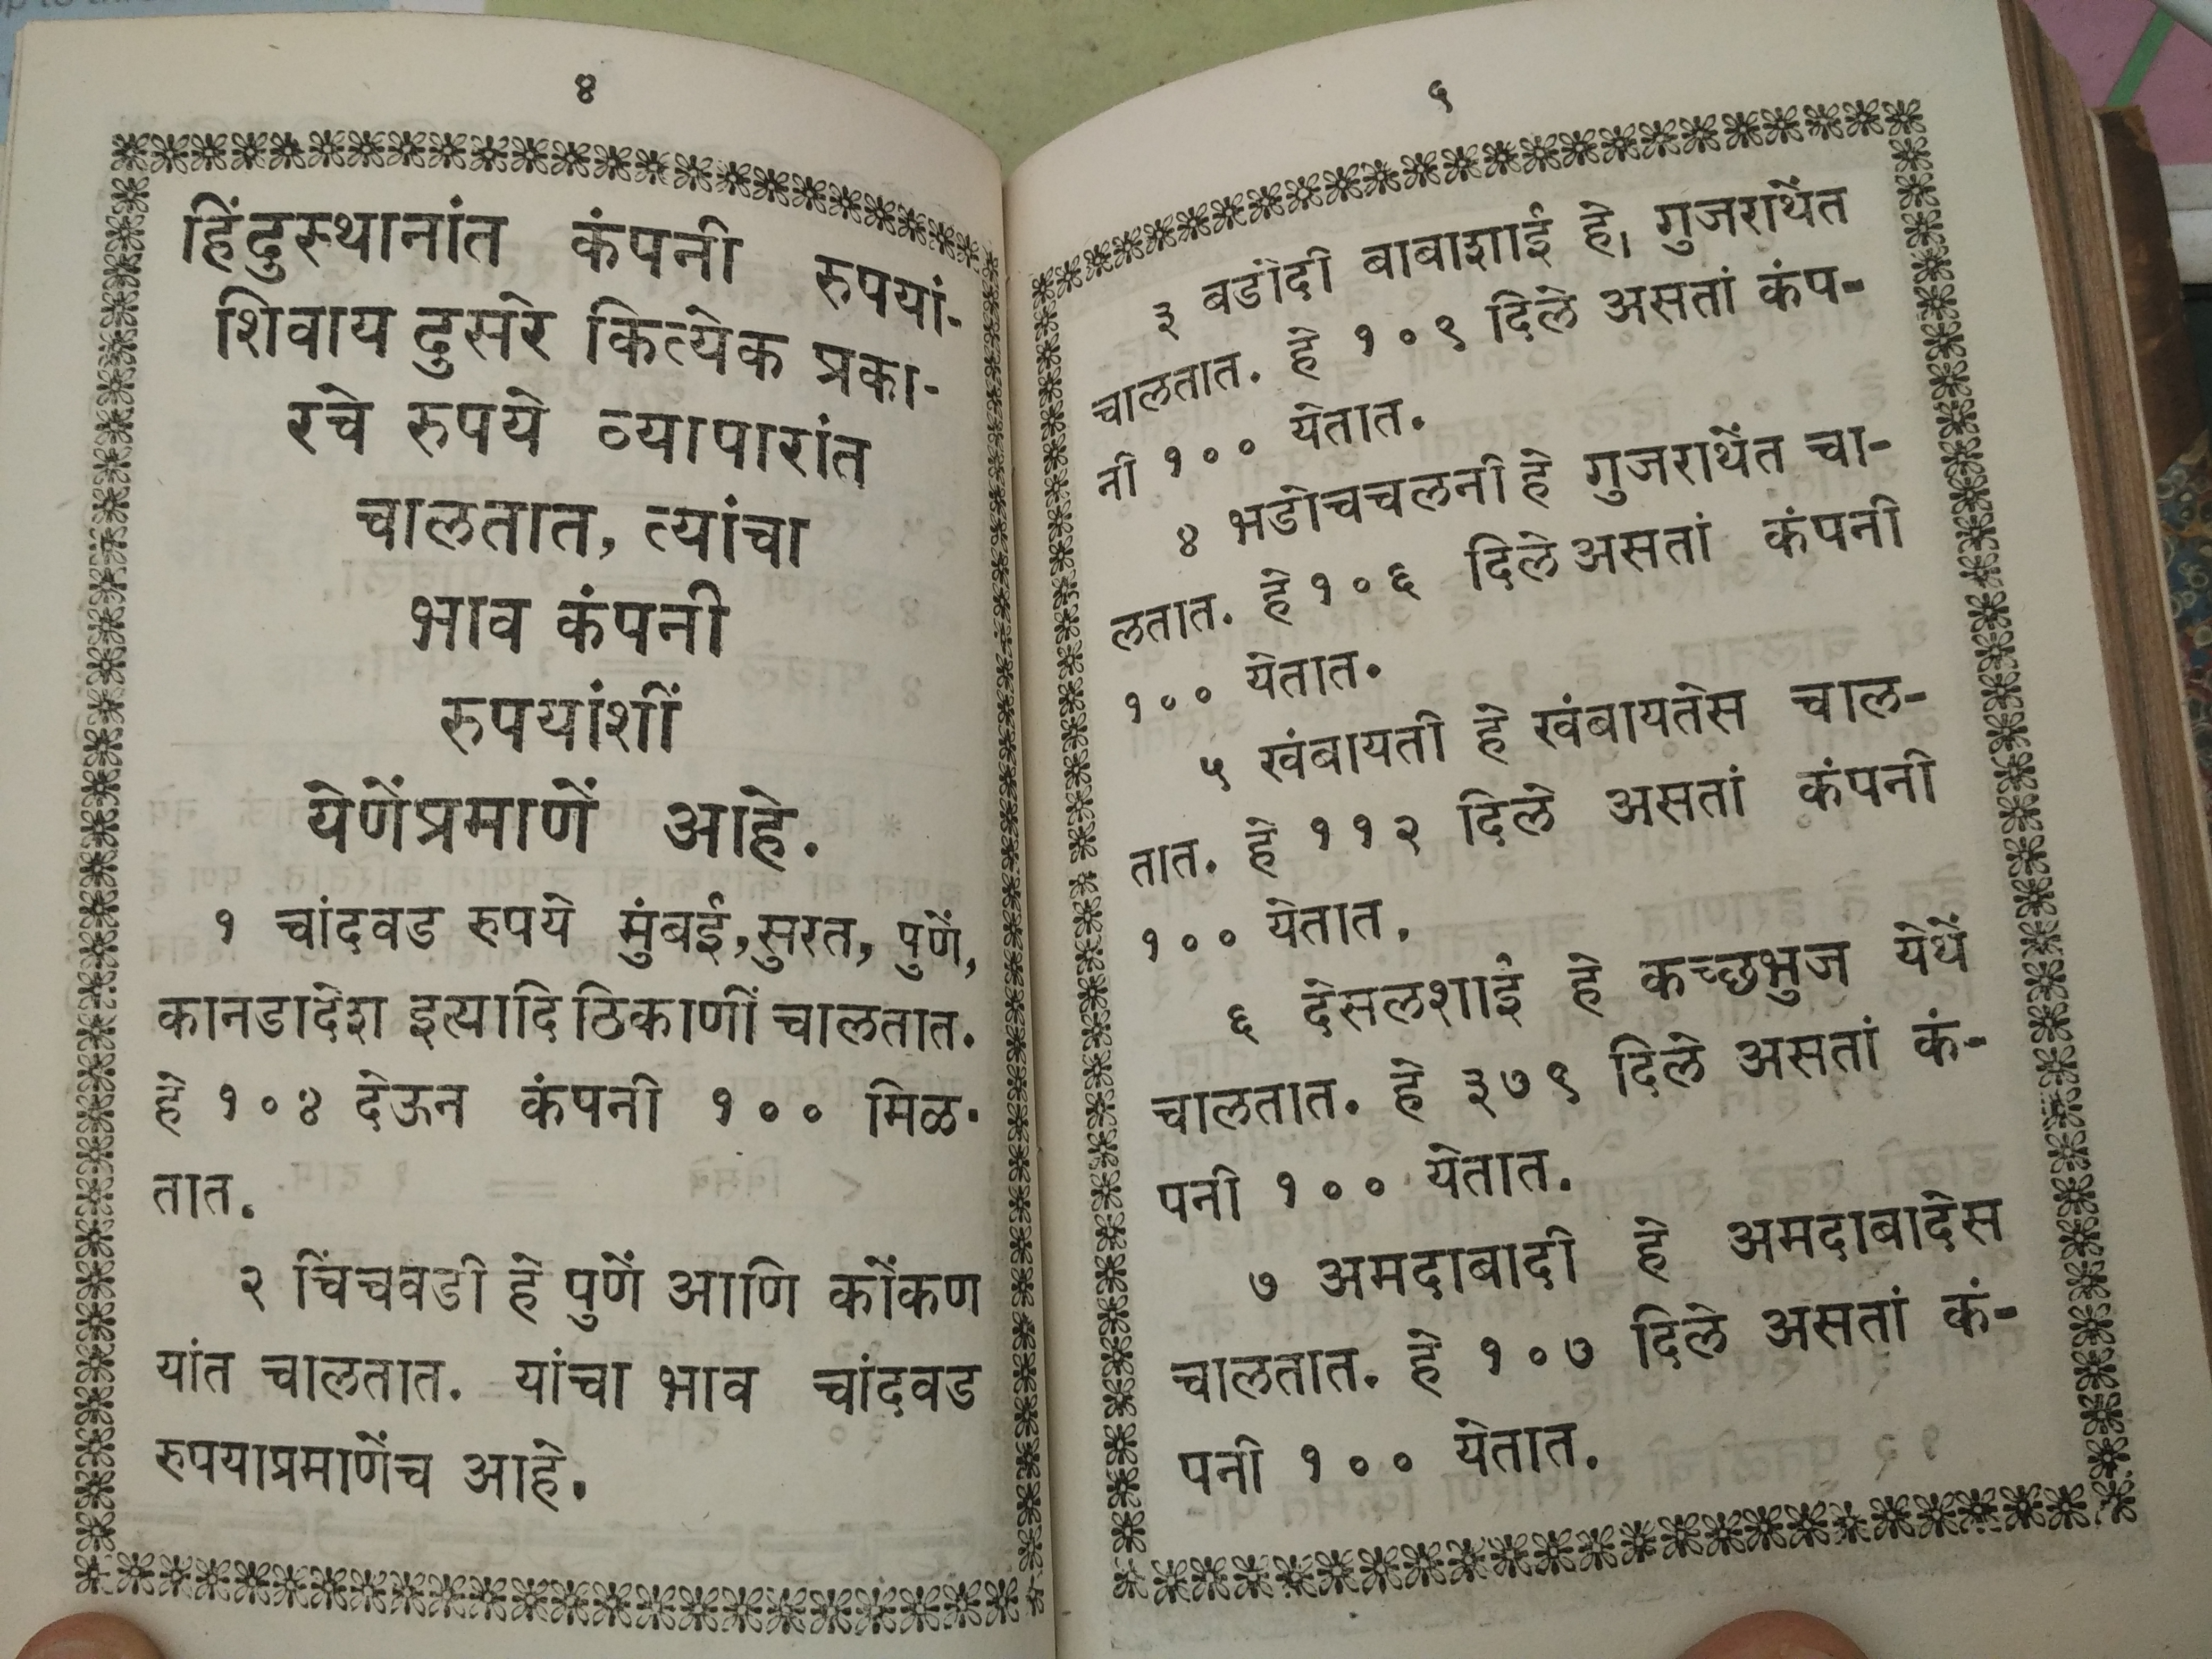 ४
हिंदुस्थानांत कंपनी रुपयां-
शिवाय दुसरे कित्येक प्रका-
रचे रुपये व्यापारांत
चालतात, त्यांचा
भाव कंपनी
रुपयांशीं
येणेंप्रमाणें आहे.
१ चांदवड रुपये मुंबई, सुरत, पुणें,
कानडादेश इत्यादि ठिकाणीं चालतात.
हे १०४ देऊन कंपनी १०० मिळ-
तात.
२ चिंचवडी हे पुणें आणि कोंकण
यांत चालतात. यांचा भाव चांदवड
रुपयाप्रमाणेंच आहे.
५
३ बडोदी बाबाशाई हे, गुजराथेंत
चालतात. हे १०९ दिले असतां कंप-
नी १०० येतात.
४ भडोचचलनी हे गुजराथेंत चा-
लतात. हे १०६ दिले असतां कंपनी
१०० येतात.
५ खंबायती हे खंबायतेस चाल-
तात. हे ११२ दिले असतां कंपनी
१०० येतात.
६ देसलशाई हे कच्छभुज येथें
चालतात. हे ३७९ दिले असतां कं-
पनी १०० येतात.
७ अमदाबादी हे अमदाबादेस
चालतात. हे १०७ दिले असतां कं-
पनी १०० येतात.